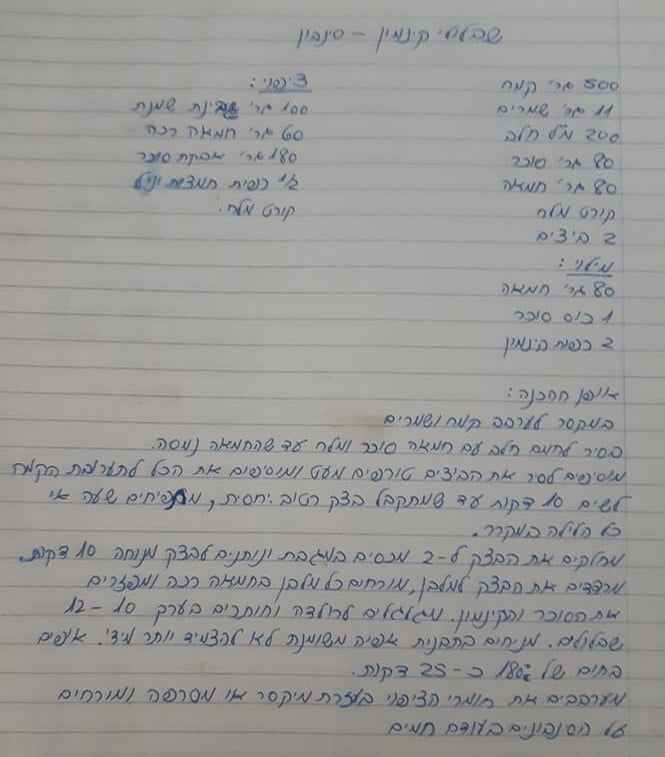 שבלולי קינמון - סינבון
500 גר' קמח
11 גר' שמרים
200 מ"ל חלב
80 גר' סוכר
80 גר' חמאה
קורט מלח
2 ביצים
מילוי:
80 גר' חמאה
1 כוס סוכר
2 כפות קינמון
ציפוי:
100 גר' גבינת שמנת
60 גר' חמאה רכה
180 גר' אבקת סוכר
1/2 כפית תמצית וניל
קורט מלח.
אופן ההכנה:
במקסר לערבב קמח ושמרים
בסיר לחמם חלב עם חמאה סוכר ומלח עד שהחמאה נמסה.
מוסיפים לסיר את הביצים טורפים מעט ומוסיפים את הכל לתערובת הקמח
לשים 10 דקות עד שמתקבל בצק רטוב יחסית, מתפיחים שעה או
כל הלילה במקרר.
מחלקים את הבצק ל-2 מכסים במגבת ונותנים לבצק מנוחה 10 דקות.
מרדדים את הבצק למלבן, מורחים כל מלבן בחמאה רכה ומפזרים
את הסוכר והקינמון. מגלגלים לרולדה וחותכים בערך 10-12
שבלולים. מניחים בתבנית אפיה משומנת לא להצמיד יותר מידי. אופים
בחום של 180 כ-25 דקות.
מערבבים את חומרי הציפוי בעזרת מיקסר או מטרפה ומורחים
על הסנבונים בעודם חמים